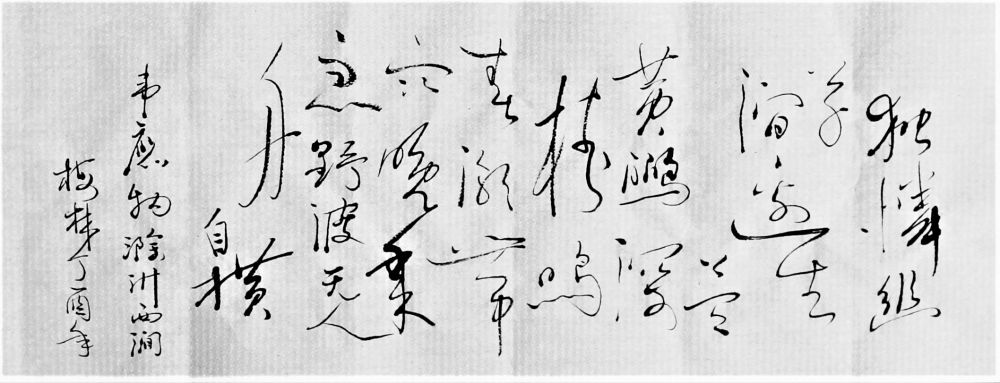 独憐幽
草
澗邊生
上有
黄鸝深
樹鳴
春潮带
雨晚来
急野渡无人
舟
自横
韦應物滁州西澗
梅林丁酉年